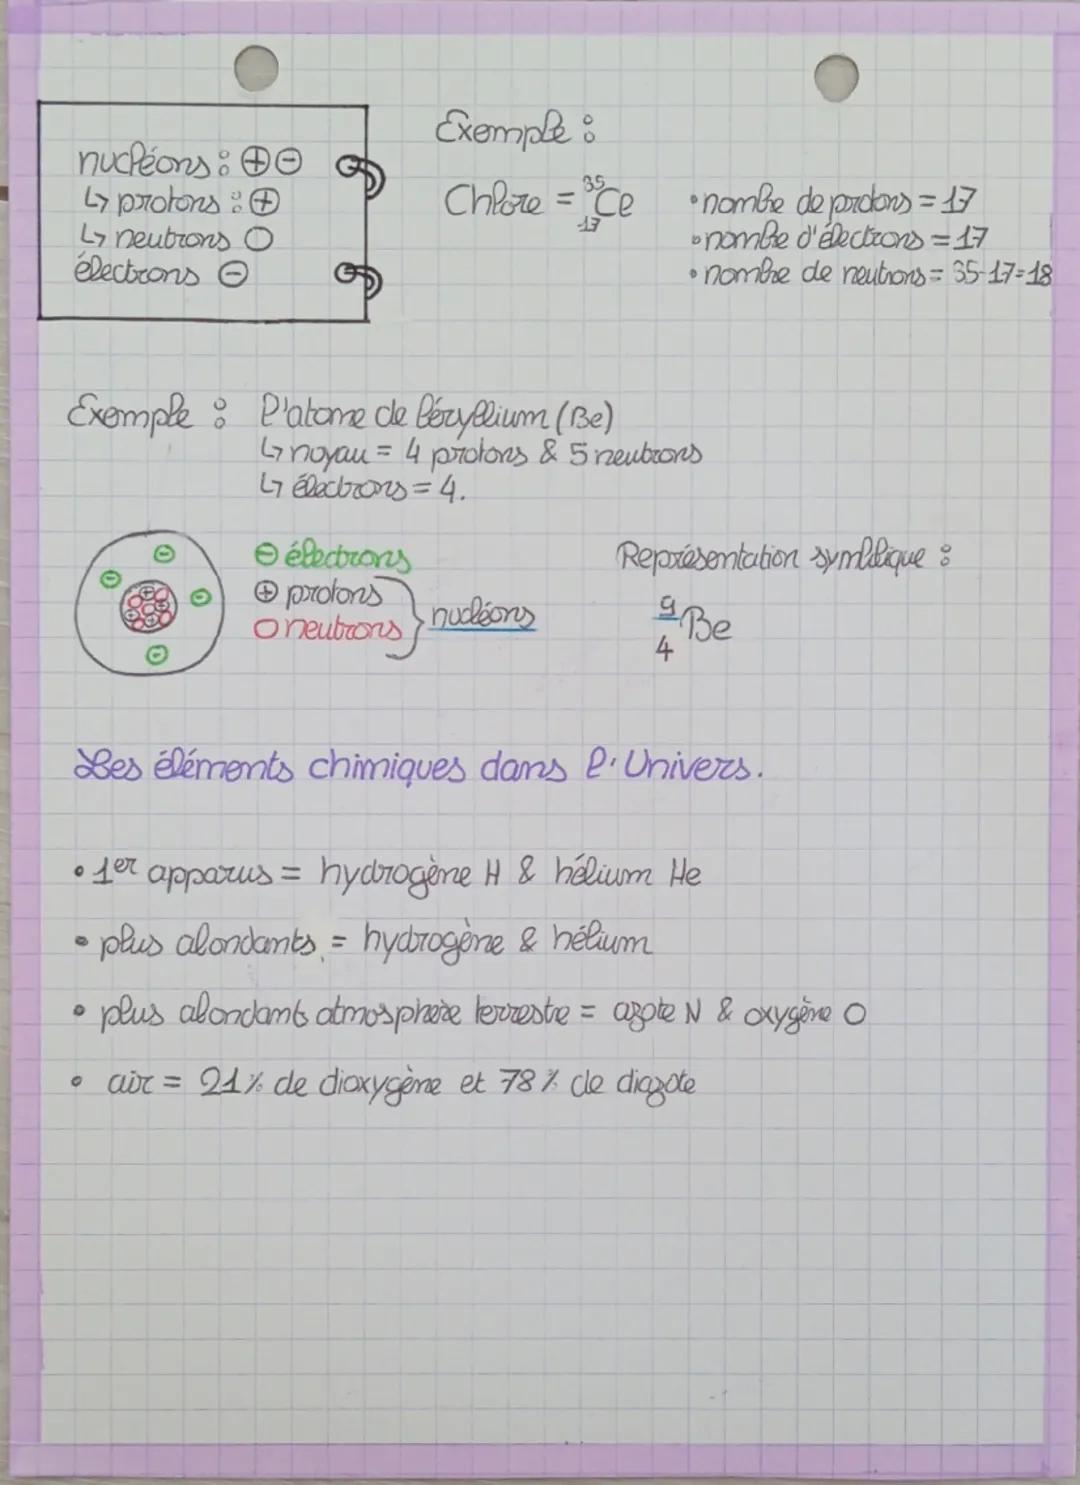 nucléons : ⊕⊖
↳ protons : ⊕
↳ neutrons ○
électrons ⊖
Exemple :
Chlore = ³⁵₁₇Cl
• nombre de protons = 17
• nombre d'électrons = 17
• nombre de neutrons = 35-17=18
Exemple : l'atome de béryllium (Be)
↳ noyau = 4 protons & 5 neutrons
↳ électrons = 4.
⊖ électrons
⊕ protons
○ neutrons
nucléons
Représentation symblique :
⁹₄Be
Les éléments chimiques dans l'Univers.
• 1er apparus = hydrogène H & hélium He
• plus abondants = hydrogène & hélium
• plus abondants atmosphère terrestre = azote N & oxygène O
• air = 21% de dioxygène et 78% de diazote